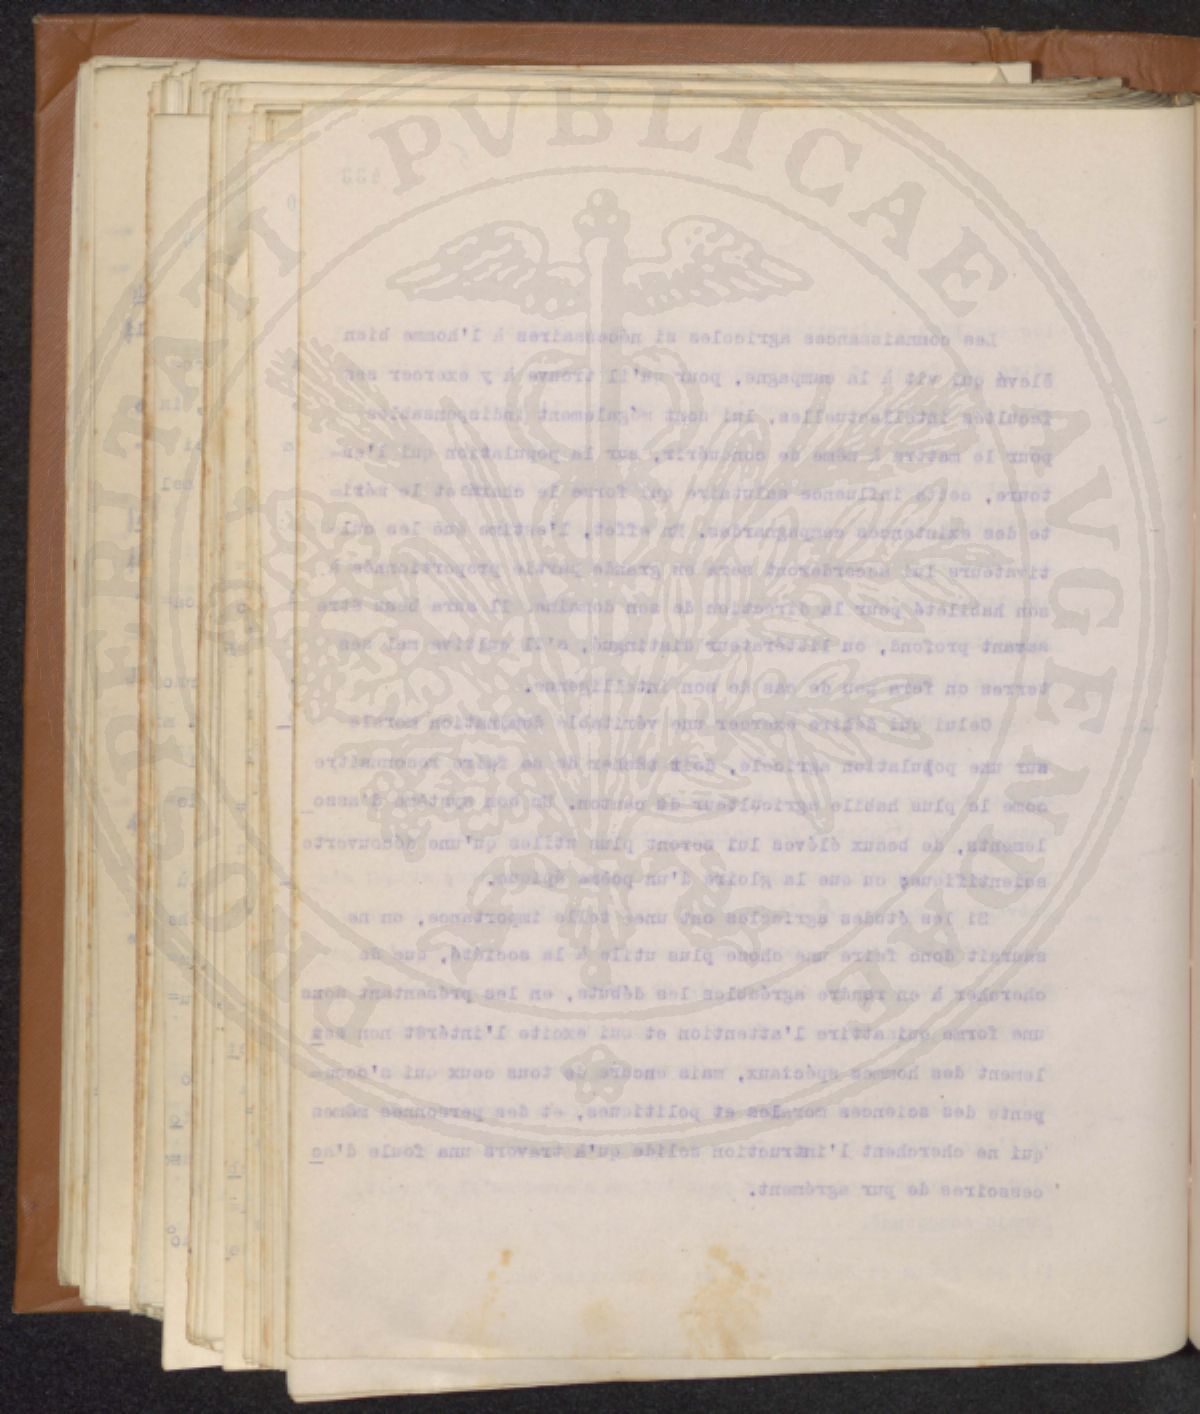 Les connaissances agricoles si nécessaires à l'homme bien
élevé qui vit à la campagne, pour qu'il trouve à y exercer ses
facultés intellectuelles, lui sont également indispensables
pour le mettre à même de conquérir, sur la population qui l'en-
toure, cette influence salutaire qui forme le charme et le méri-
te des existences campagnardes. En effet, l'estime que les cul-
tivateurs lui accorderont sera en grande partie proportionnée à
son habileté pour la direction de son domaine. Il aura beau être
savant profond, ou littérateur distingué, s'il cultive mal ses
terres on fera peu de cas de son intelligence.
Celui qui désire exercer une véritable domination morale
sur une population agricole, doit tâcher de se faire reconnaitre
come le plus habile agriculteur du canton. Un bon système d'asso
lements, de beaux élèves lui seront plus utiles qu'une découverte
scientifique; ou que la gloire d'un poème épique.
Si les études agricoles ont une telle importance, on ne
saurait donc faire une chose plus utile à la société, que de
chercher à en rendre agréables les débuts, en les présentant sous
une forme qui attire l'attention et qui excite l'intérêt non seu
lement des hommes spéciaux, mais encore de tous ceux qui s'occu-
pent des sciences morales et politiques, et des personnes mêmes
qui ne cherchent l'instruction solide qu'à travers una foule d'ac
cessoires de pur agrément.
PROSPERITATI PVBLICAE AVGENDAE